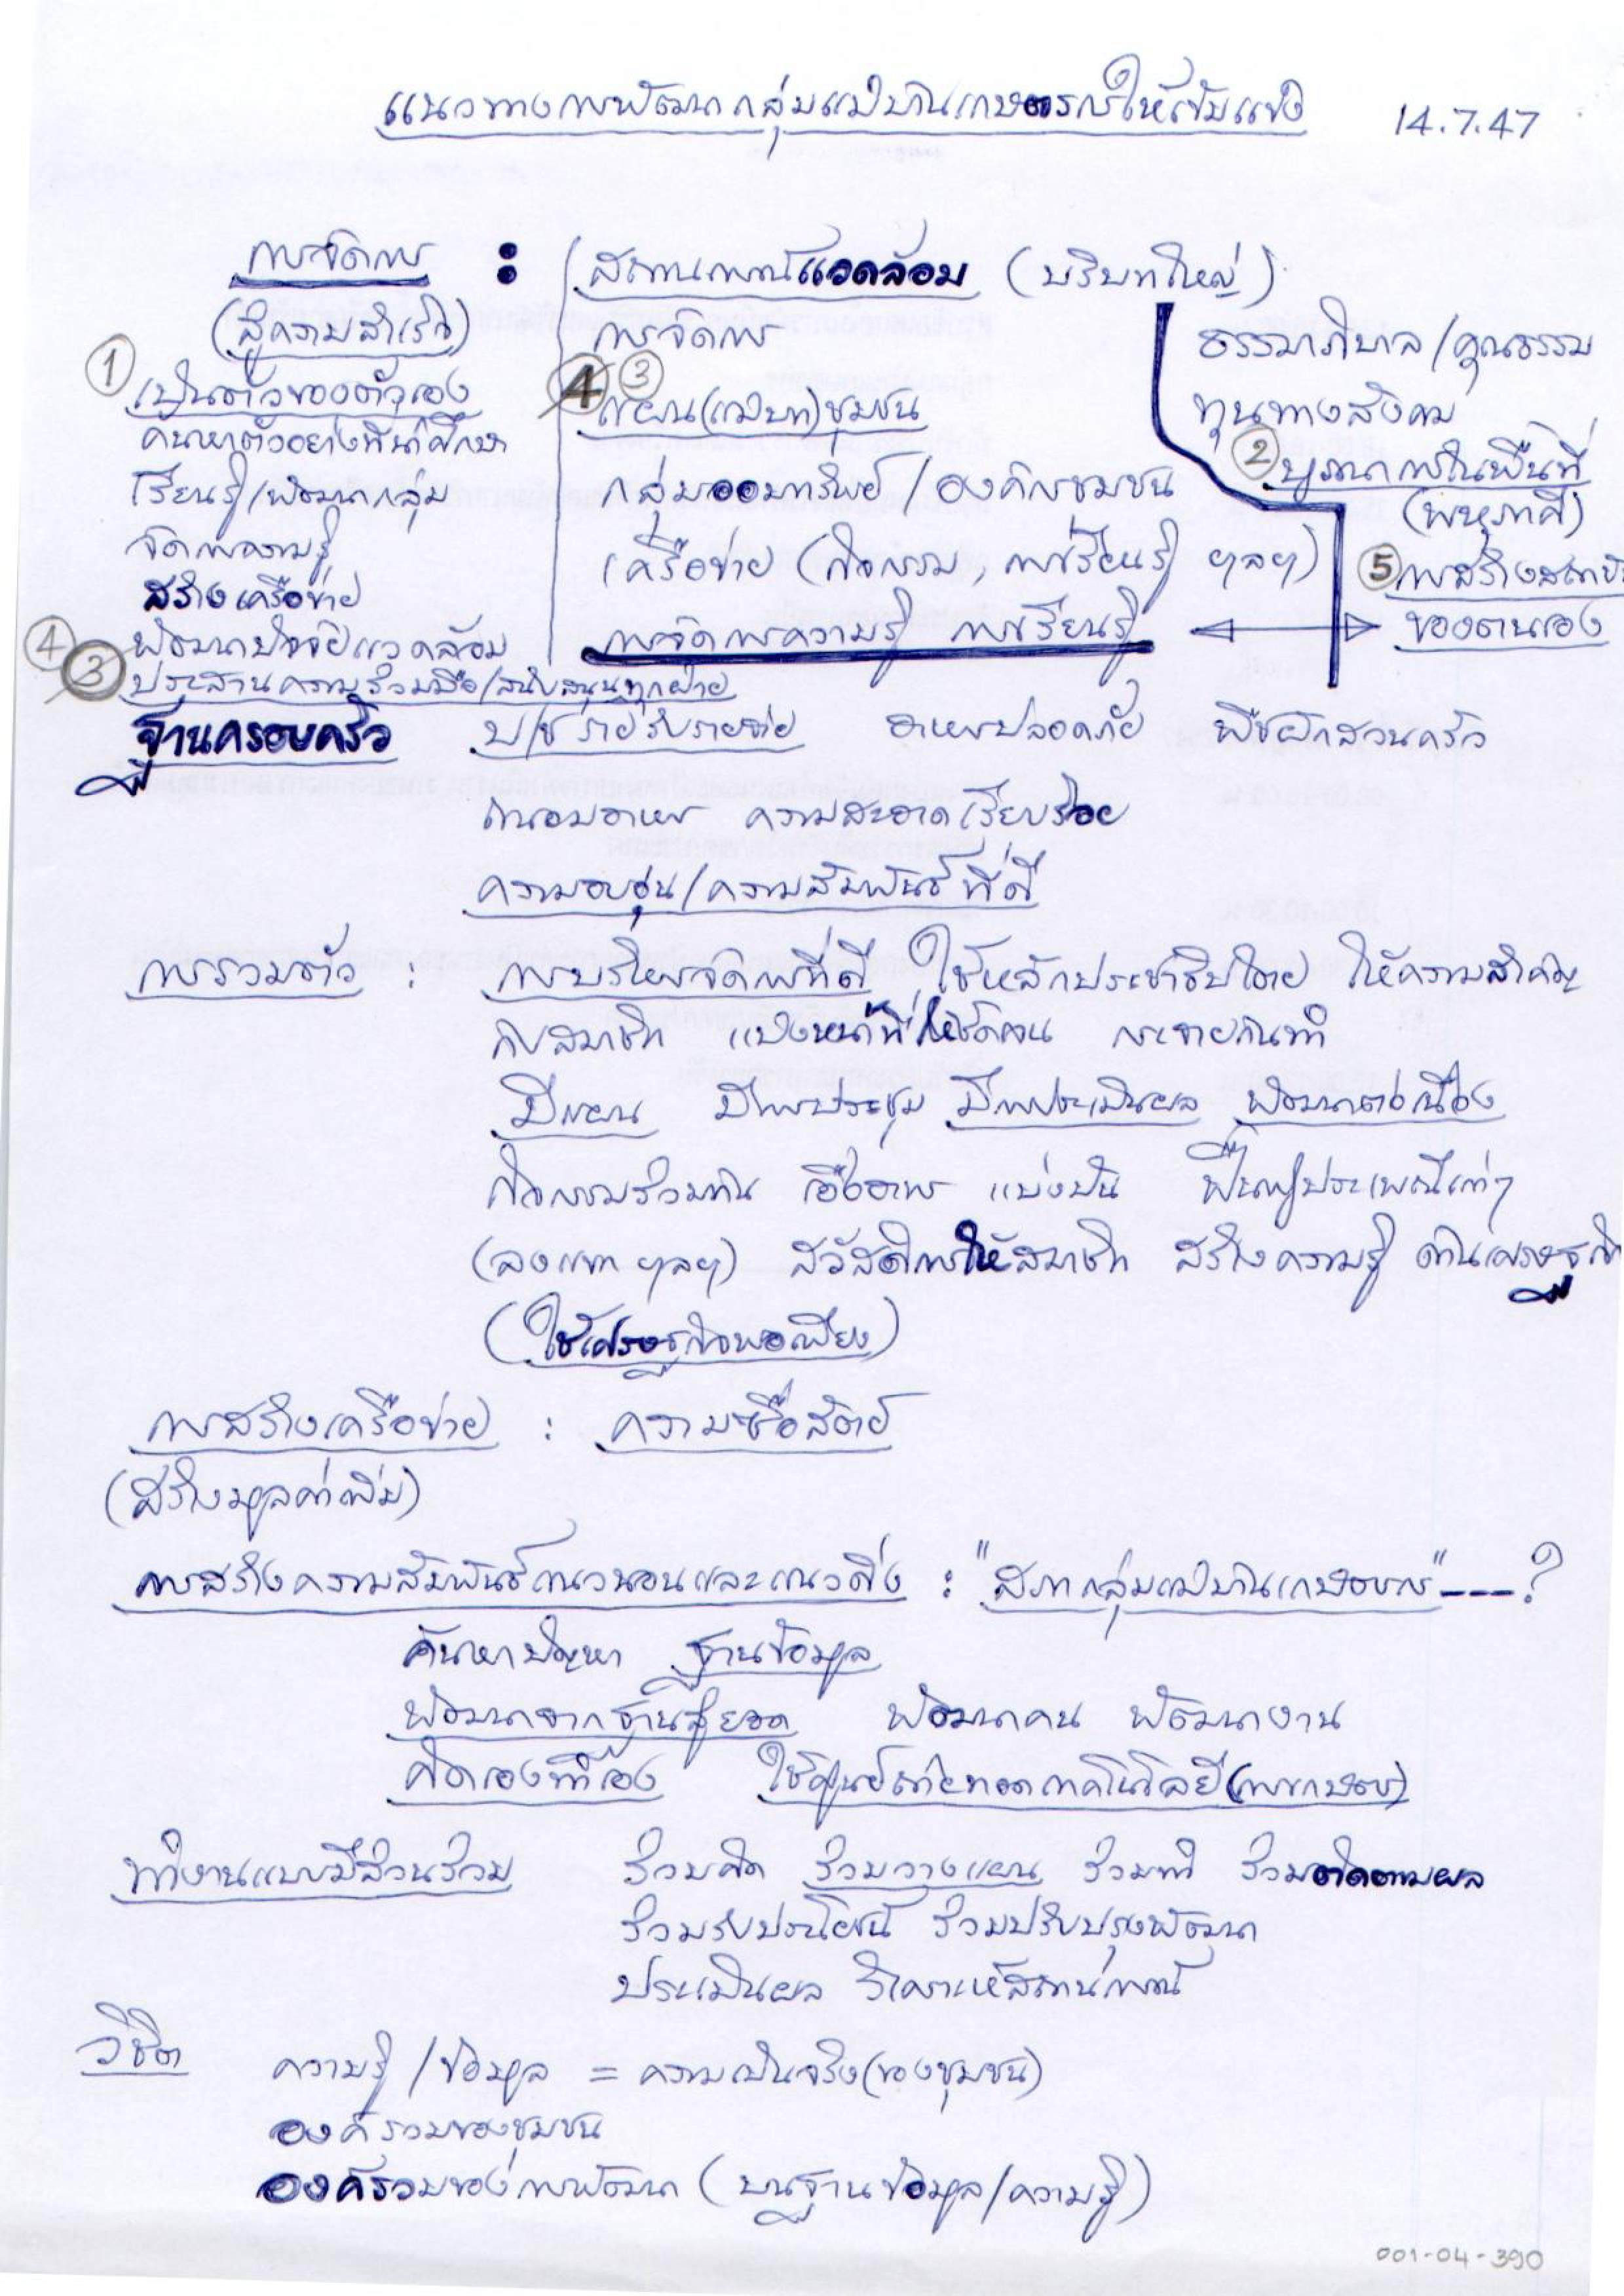 แนวทางการพัฒนากลุ่มแม่บ้านเกษตรกรให้เข้มแข็ง 14.7.47
การจัดการ : สถานการณ์แวดล้อม (บริบทใหญ่)
(สู่ความสำเร็จ) การจัดการ ธรรมาภิบาล/คุณธรรม
① เป็นตัวของตัวเอง 4 ③ แผน(แม่บท)ชุมชน ทุนทางสังคม
ค้นหาตัวอย่างที่น่าศึกษา ② บูรณาการในพื้นที่
เรียนรู้/พัฒนากลุ่ม กลุ่มออมทรัพย์/องค์กรชุมชน (พหุภาคี)
จัดการความรู้ เครือข่าย (กิจกรรม, การเรียนรู้ ฯลฯ) ⑤ การสร้างสถาบัน
สร้างเครือข่าย
④ พัฒนาปัจจัยแวดล้อม การจัดการความรู้ การเรียนรู้ ของตนเอง
3 ประสานความร่วมมือ/สนับสนุนทุกฝ่าย
ฐานครอบครัว บ/ช รายรับรายจ่าย อาหารปลอดภัย พืชผักสวนครัว
ถนอมอาหาร ความสะอาดเรียบร้อย
ความอบอุ่น/ความสัมพันธ์ที่ดี
การรวมตัว : การบริหารจัดการที่ดี ใช้หลักประชาธิปไตย ให้ความสำคัญ
กับสมาชิก แบ่งหน้าที่ให้ชัดเจน กระจายกันทำ
มีแผน มีการประชุม มีการประเมินผล พัฒนาต่อเนื่อง
กิจกรรมร่วมกัน เอื้ออาทร แบ่งปัน ฟื้นฟูประเพณีเก่าๆ
(ลงแขก ฯลฯ) สวัสดิการให้สมาชิก สร้างความรู้ ด้านเศรษฐกิจ
(ใช้เศรษฐกิจพอเพียง)
การสร้างเครือข่าย : ความซื่อสัตย์
(สร้างมูลค่าเพิ่ม)
การสร้างความสัมพันธ์แนวนอนและแนวดิ่ง : "สภากลุ่มแม่บ้านเกษตรกร" ---?
ค้นหาปัญหา ฐานข้อมูล
พัฒนาจากฐานสู่ยอด พัฒนาคน พัฒนางาน
คิดเองทำเอง ใช้ศูนย์ถ่ายทอดเทคโนโลยี(การเกษตร)
ทำงานแบบมีส่วนร่วม ร่วมคิด ร่วมวางแผน ร่วมทำ ร่วมติดตามผล
ร่วมรับประโยชน์ ร่วมปรับปรุงพัฒนา
ประเมินผล วิเคราะห์สถานการณ์
วิชิต ความรู้/ข้อมูล = ความเป็นจริง(ของชุมชน)
องค์รวมของชุมชน
องค์รวมของการพัฒนา (บนฐานข้อมูล/ความรู้)
001-04-390